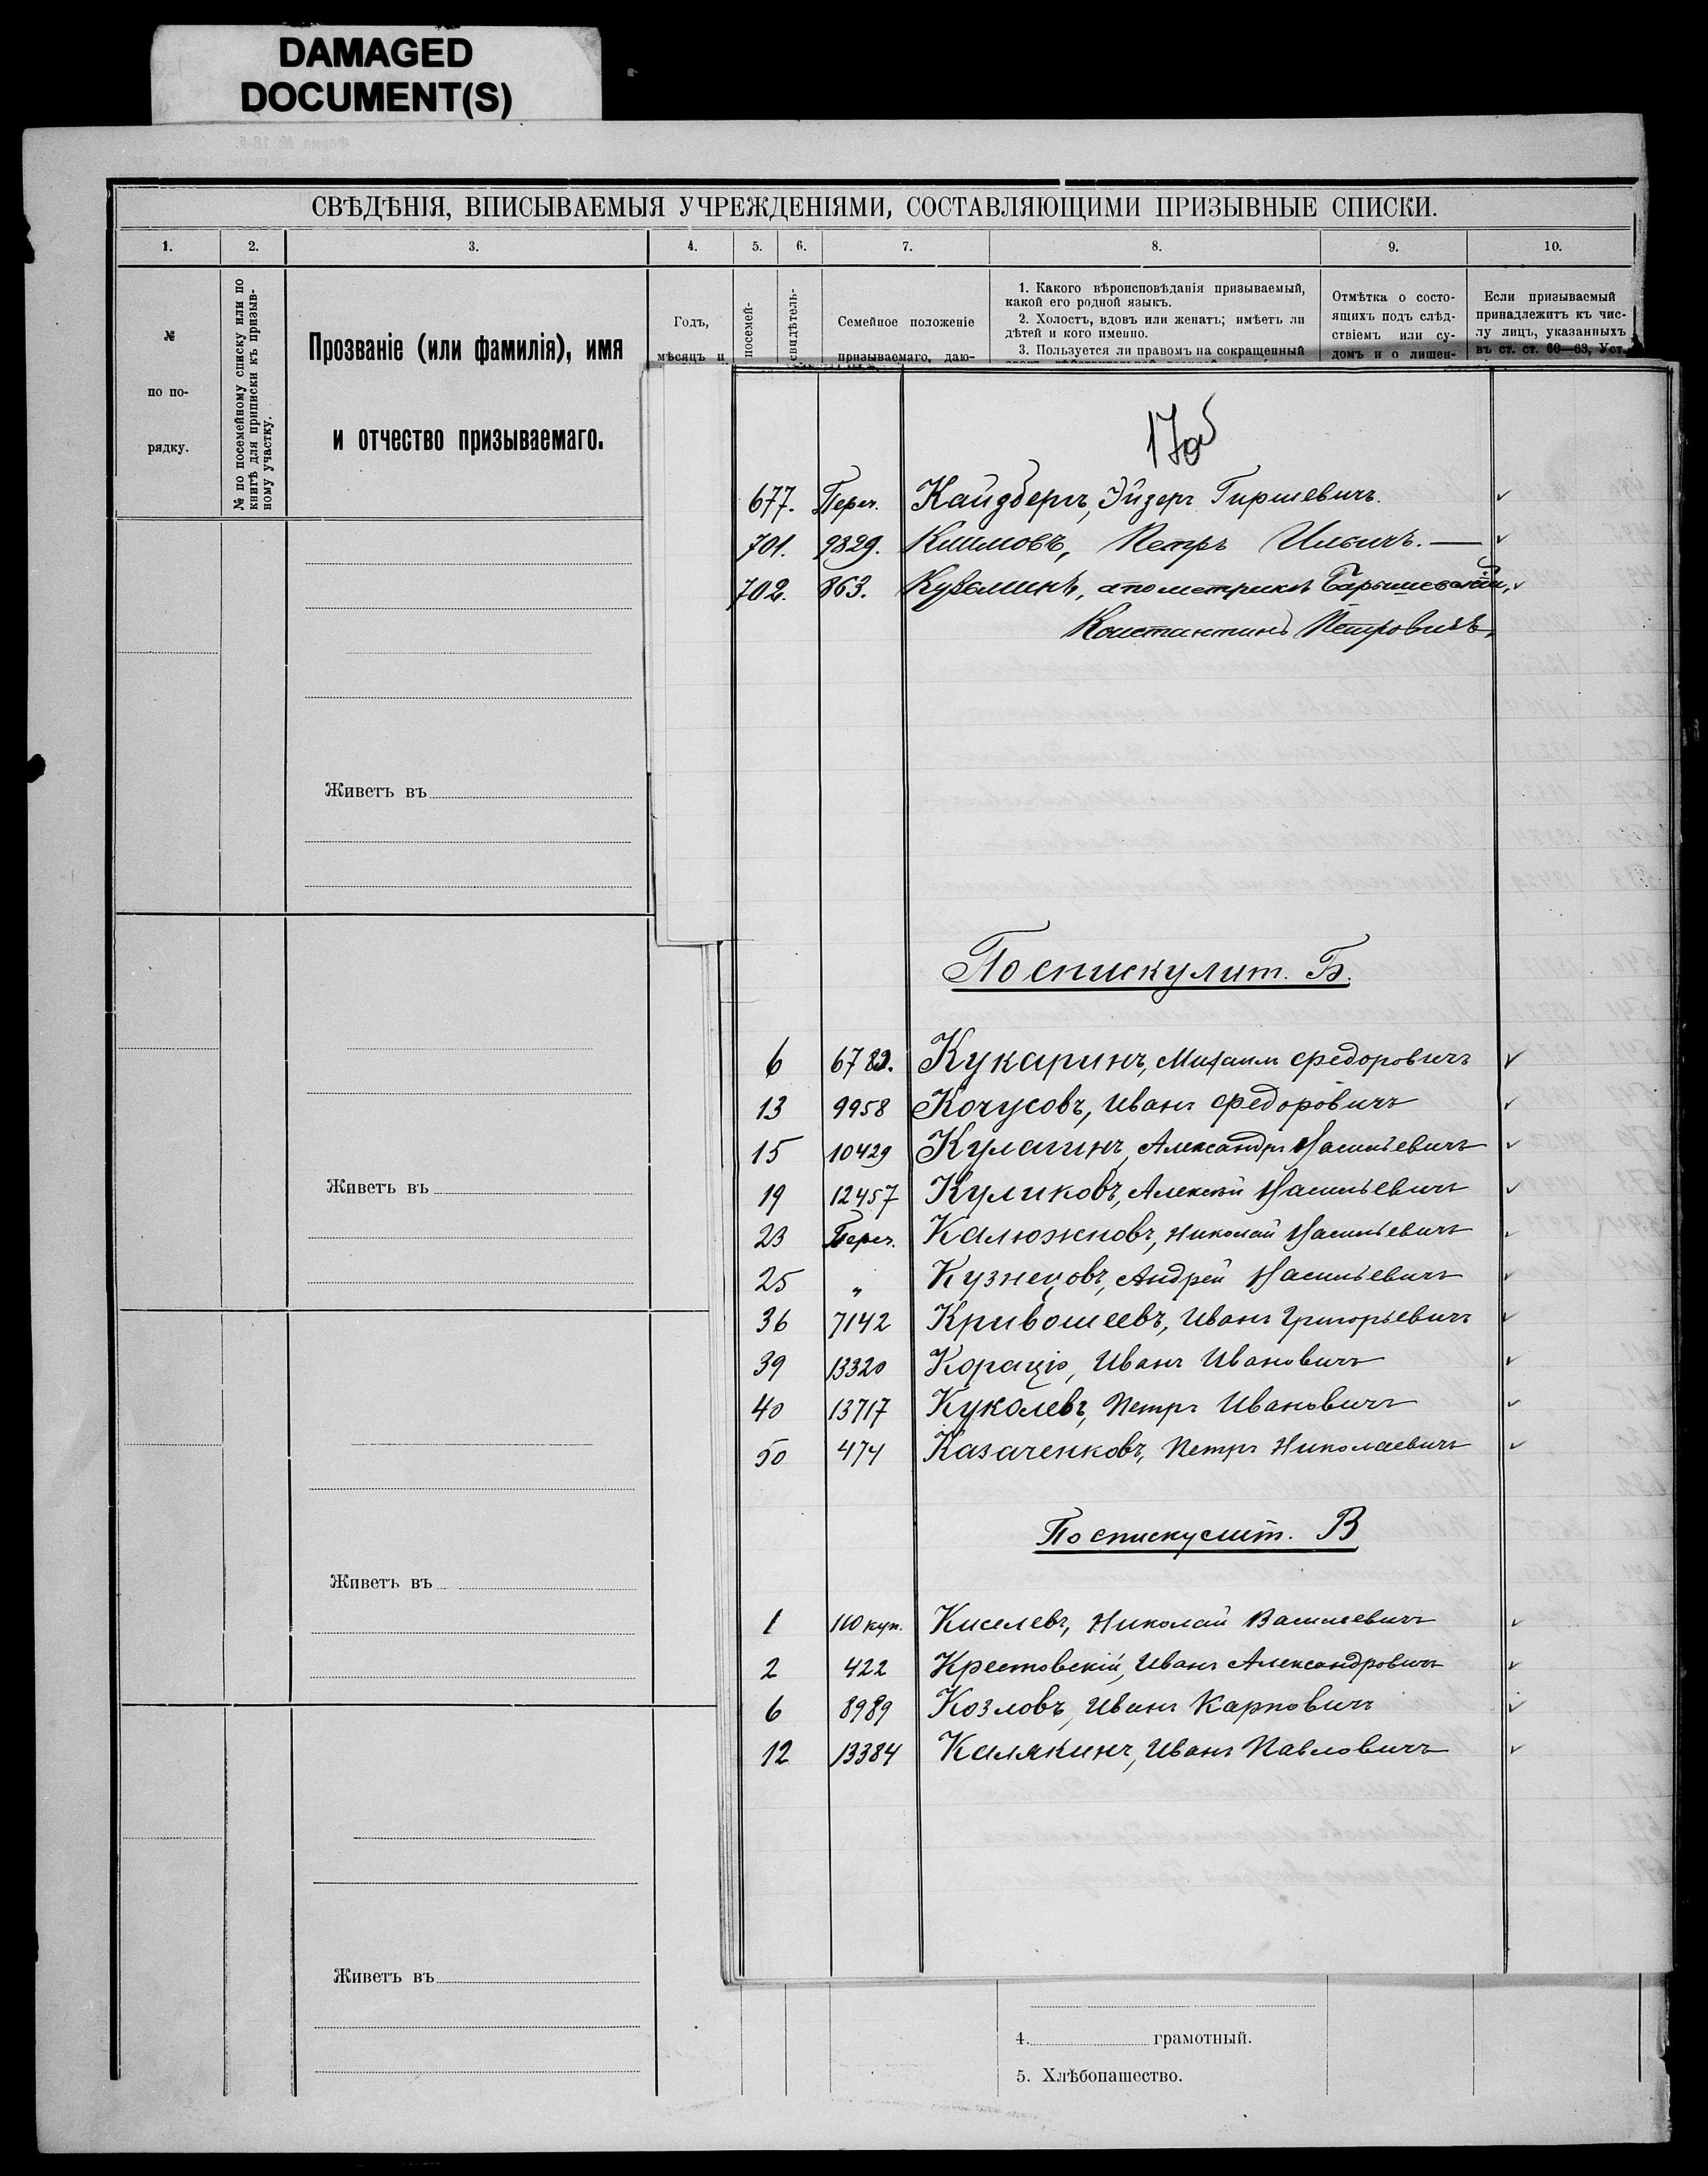 DAMAGED
DOCUMENT(S)
СВѢДѢНІЯ, ВПИСЫВАЕМЫЯ УЧРЕЖДЕНІЯМИ, СОСТАВЛЯЮЩИМИ ПРИЗЫВНЫЕ СПИСКИ.
1. 2. 3. 4. 5. 6. 7. 8. 9. 10.
№
по по-
рядку.
№ по посемейному списку или по
книгѣ для приписки къ призыв-
ному участку.
Прозваніе (или фамилія), имя
и отчество призываемаго.
Годъ,
мѣсяцъ и
посемей-
свидѣтель-
Семейное положеніе
призываемаго, даю-
1. Какого вѣроисповѣданія призываемый,
какой его родной языкъ.
2. Холостъ, вдовъ или женатъ; имѣетъ ли
дѣтей и кого именно.
3. Пользуется ли правомъ на сокращенный
Отмѣтка о состо-
ящихъ подъ слѣд-
ствіемъ или су-
домъ и о лишен-
Если призываемый
принадлежитъ къ чис-
лу лицъ, указанныхъ
въ ст. ст. 60—63, Уст.
17об
677. Переч. Кайзбергъ, Эйзеръ Гиршевичъ. ✓
701. 9829. Климовъ, Петръ Ильичъ. — ✓
702. 863. Кузьминъ, а по метрикѣ Барышевскій, ✓
Константинъ Петровичъ,
По списку лит. Б.
6 Кукаринъ, Михаилъ Федоровичъ ✓
13 9958 Кочусовъ, Иванъ Федоровичъ ✓
15 10429 Кулагинъ, Александръ Васильевичъ ✓
19 12457 Куликовъ, Алексѣй Васильевичъ ✓
23 Переч. Калюжновъ, Николай Васильевичъ
25 „ Кузнецовъ, Андрей Васильевичъ ✓
36 7142 Кривошеевъ, Иванъ Григорьевичъ ✓
39 13320 Иванъ Ивановичъ ✓
40 13717 Куколевъ, Петръ Ивановичъ ✓
50 474 Казаченковъ, Петръ Николаевичъ ✓
По списку лит. В
1 110 куп. Киселевъ, Николай Васильевичъ ✓
2 422 Крестовскій, Иванъ Александровичъ ✓
6 8989 Козловъ, Иванъ Карповичъ ✓
12 13384 Калякинъ, Иванъ Павловичъ ✓
Живетъ въ
Живетъ въ
Живетъ въ
Живетъ въ
4. грамотный.
5. Хлѣбопашество.